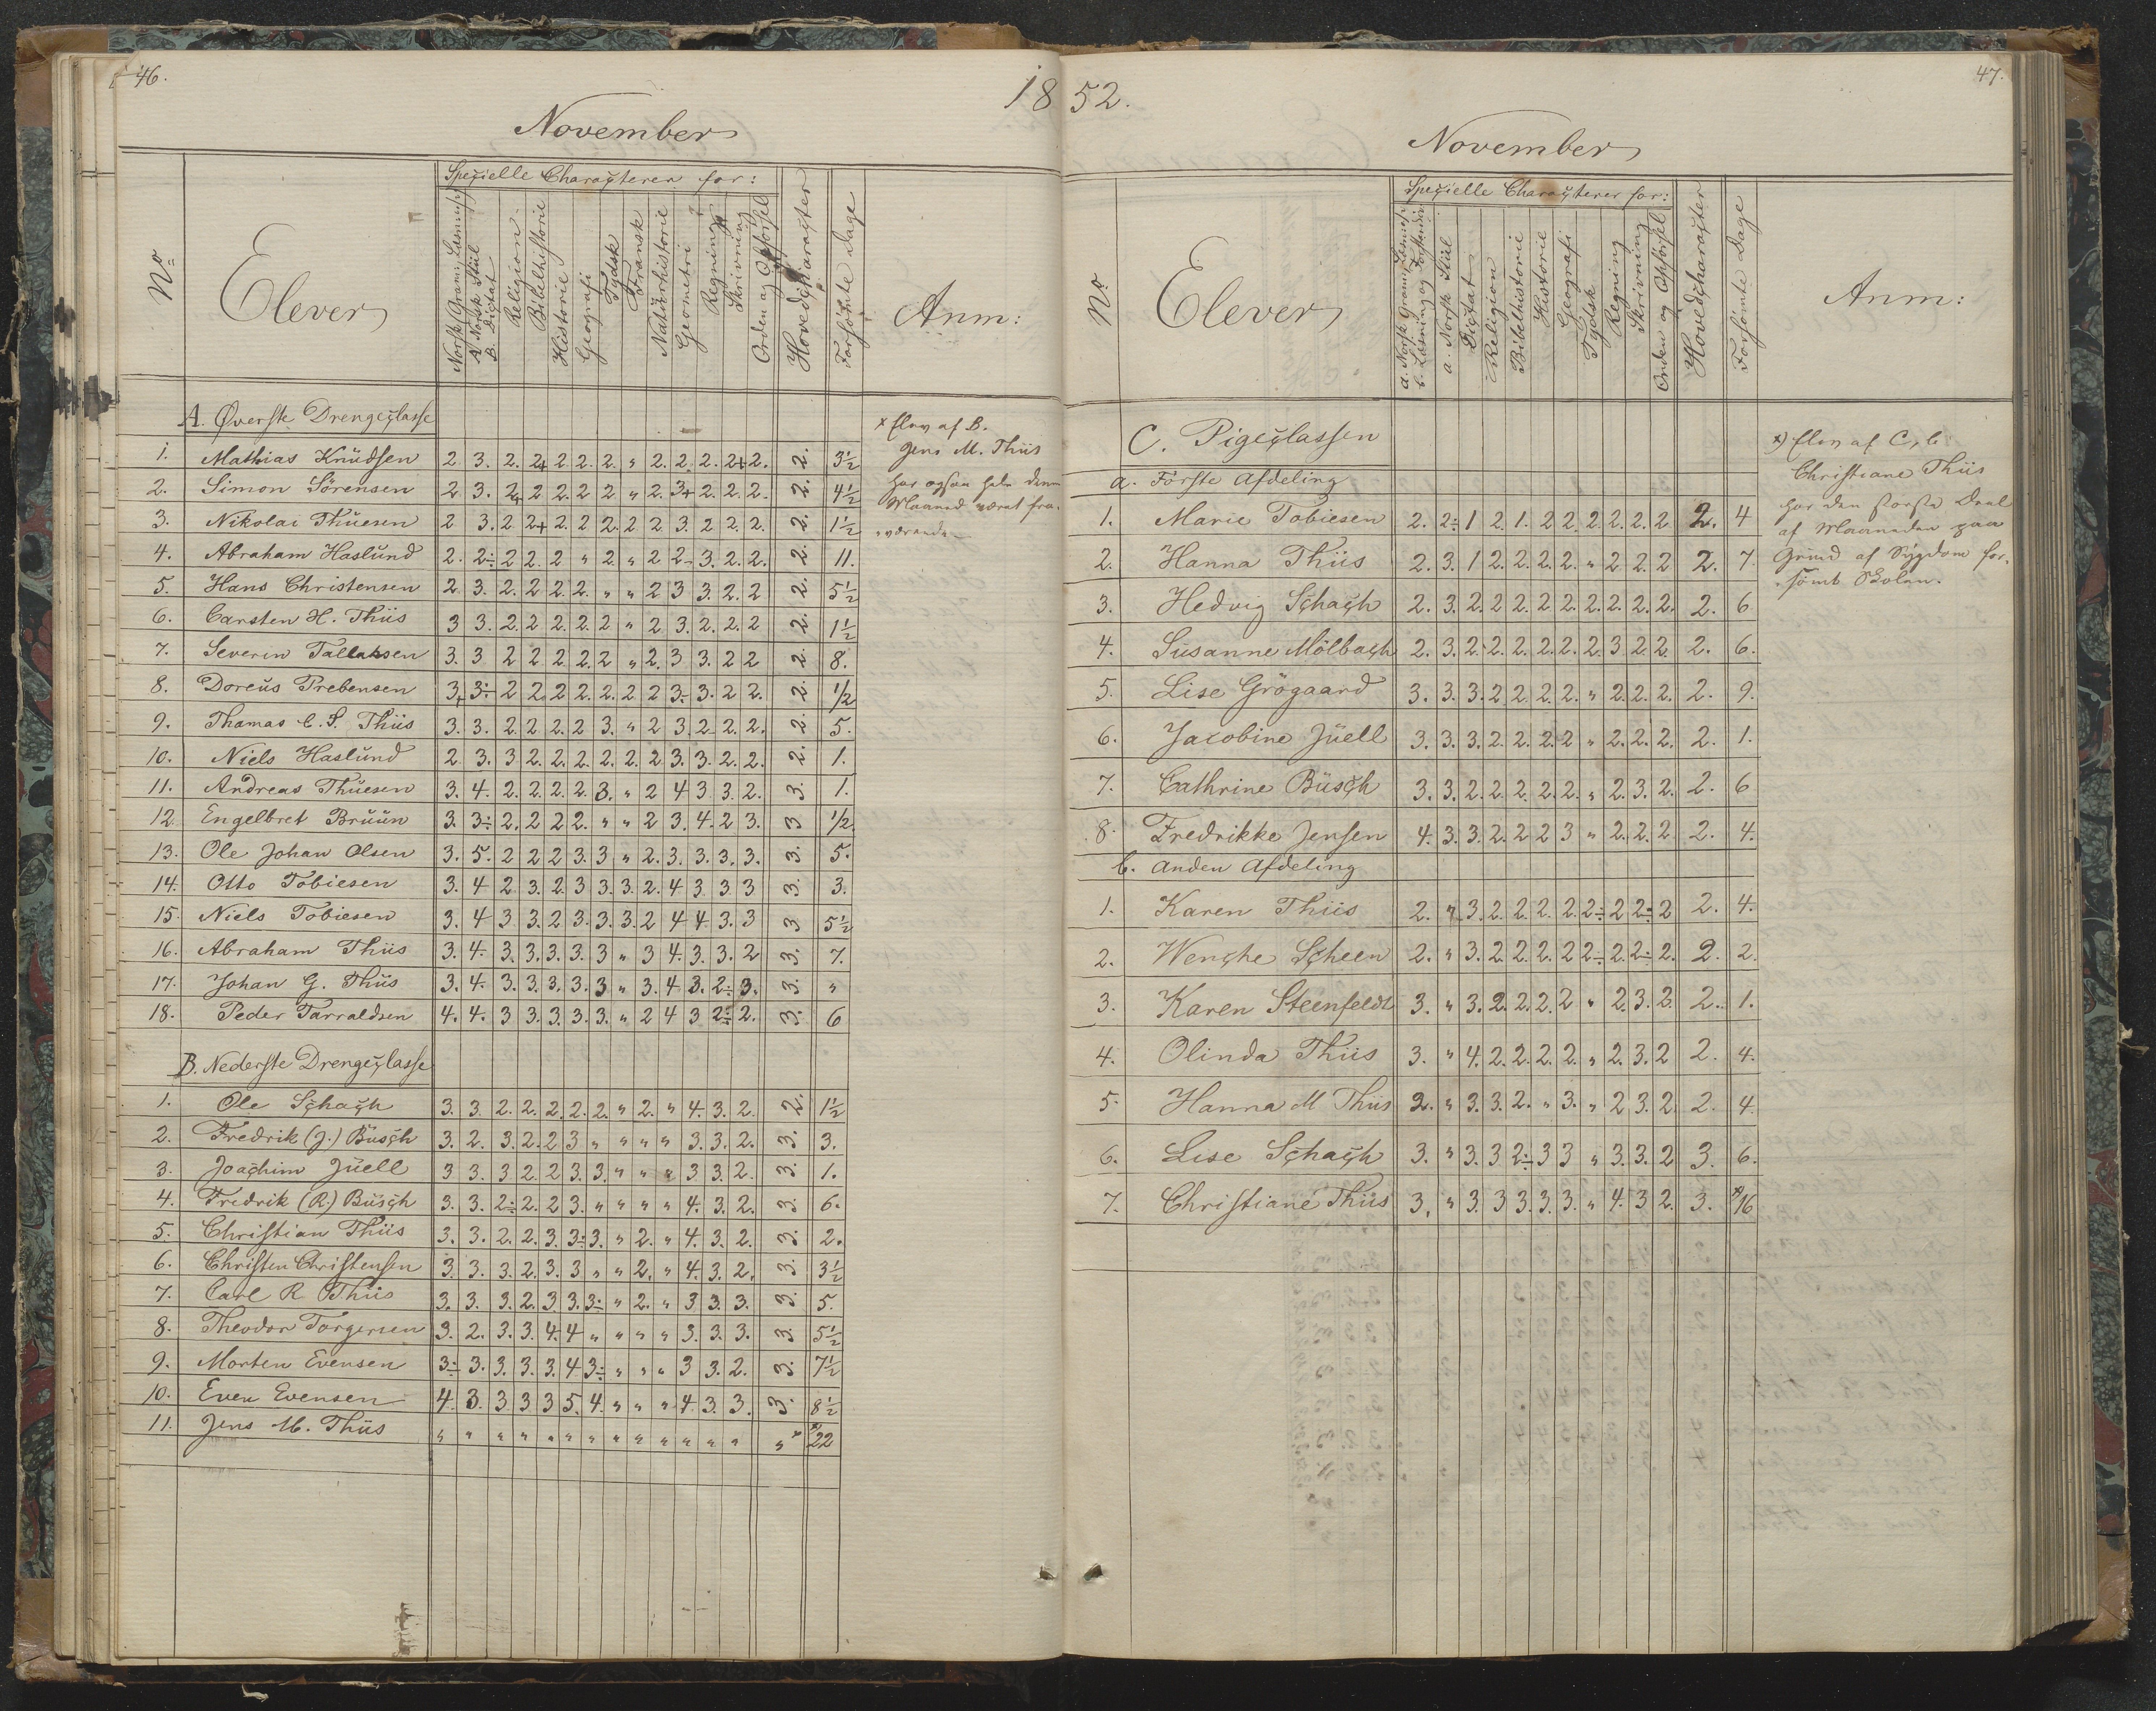 46.
18
November
No
Elever
Speçielle Charaçterer for:
Norsk Gram., Læsning
A. Norsk Stiil
B. Diçtat
Religion
Bibelhistorie
Historie
Geografi
Tydsk
Fransk
Naturhistorie
Geometri
Regning
Skrivning
Orden og Opförsel
Hovedçharaçter
Forsömte Dage
Anm:
A. Øverste Drengeçlasse
1. Mathias Knüdsen 2 3. 2. 2+ 2 2. 2. " 2. 2. 2. 2+ 2. 2. 3½
2. Simon Sörensen 2. 3. 2 2 2. 2 2 " 2. 3+ 2. 2. 2. 2. 4½
3. Nikolai Thüesen 2 3. 2 2+ 2. 2 2. 2 2 3. 2 2. 2. 2. 1½
4. Abraham Haslünd 2. 2÷ 2 2. 2 " 2. " 2 2 3. 2. 2. 2. 11.
5. Hans Christensen 2 3. 2. 2 2. 2. " " 2 3 3. 2. 2 2. 5½
6. Carsten H. Thiis 3 3. 2. 2 2. 2. 2 " 2 3. 2. 2. 2 2. 1½
7. Severin Tallaksen 3. 3 2 2 2. 2. 2 " 2. 3 3. 2 2 2. 8.
8. Doreüs Prebensen 3+ 3÷ 2 2. 2 2. 2. 2 2 3÷ 3. 2 2. 2. ½
9. Thomas C. S. Thiis 3. 3. 2. 2 2. 2 3. " 2 3 2. 2. 2. 2. 5.
10. Niels Haslünd 2 3. 3 2. 2. 2. 2. 2. 2 3. 3. 2. 2. 2. 1.
11. Andreas Thüesen 3. 4. 2. 2. 2. 2. 3. " 2 4 3 3. 2. 3. 1.
12. Engelbret Brüün 3. 3÷ 2. 2 2 2. " " 2 3. 4. 2 3. 3 ½
13. Ole Johan Olsen 3. 5. 2 2 2 3. 3 " 2. 3. 3. 3. 3. 3. 5.
14. Otto Tobiesen 3. 4 2 3. 2. 3 3. 3. 2. 4 3 3 3 3. 3.
15. Niels Tobiesen 3. 4 3 3. 2 3. 3. 3 2 4 4. 3. 3 3 5½
16. Abraham Thiis 3. 4. 3. 3. 3. 3. 3 " 3 4. 3. 3. 2 3. 7.
17. Johan G. Thiis 3. 4. 3. 3. 3. 3. 3 " 3. 4 3. 2÷ 3. 3. "
18. Peder Tarraldsen 4. 4. 3 3. 3. 3. 3. " 2 4 3 2÷ 2. 3. 6
B. Nederste Drengeçlasse
1. Ole Sçhaçh 3. 3. 2. 2. 2. 2. 2. " 2. " 4. 3. 2. 2. 1½
2. Fredrik (J.) Büsçh 3. 2. 3. 2. 2 3 " " " " 3. 3. 2. 3. 3.
3. Joaçhim Jüell 3 3. 3 2. 2 3. 3. " " " 3 3. 2. 3. 1.
4. Fredrik (R.) Büsçh 3. 3. 2÷ 2. 2 3. " " " " 4. 3. 2. 3. 6.
5. Christian Thiis 3. 3. 2. 2. 3. 3÷ 3. " 2. " 4. 3. 2. 3. 2.
6. Christen Christensen 3. 3. 3. 2. 3. 3 " " 2. " 4. 3. 2. 3. 3½
7. Carl R Thiis 3. 3. 3. 2. 3. 3. 3÷ " 2. " 3 3. 3. 3. 5.
8. Theodor Torgersen 3. 2. 3. 3. 4. 4 " " " " 3. 3. 3. 3. 5½
9. Morten Evensen 3÷ 3. 3. 3. 3. 4. 3÷ " " " 3 3. 2. 3. 7½
10. Even Evensen 4. 3. 3 3 3 5. 4. " " " 4. 3. 3. 3. 8½
11. Jens M. Thiis " " " " " " " " " " " " " " x 22
x Elev af B.
Jens M. Thiis
har ogsaa hele denne
Maaned været fra-
værende
52.
47.
November
No
Elever
Speçielle Charaçterer for:
a. Norsk Gram., Læsning
b. Læsning og Forstand
a. Norsk Stiil
Diçtat
Religion
Bibelhistorie
Historie
Geografi
Tydsk
Regning
Skrivning
Orden og Opförsel
Hovedçharaçter
Forsömte Dage
Anm:
C. Pigeçlassen
a. Förste Afdeling
1. Marie Tobiesen 2. 2÷ 1 2. 1. 2 2 2. 2. 2. 2 2. 4
2. Hanna Thiis 2. 3. 1 2. 2. 2. 2. " 2. 2. 2 2. 7.
3. Hedvig Sçhaçh 2. 3. 2. 2 2. 2. 2. 2. 2. 2. 2. 2. 6
4. Susanne Mölbaçh 2. 3. 2. 2. 2. 2. 2. 2. 3 2. 2. 2. 6.
5. Lise Grögaard 3. 3. 3. 2. 2. 2. 2. " 2. 2. 2. 2. 9.
6. Jacobine Jüell 3. 3. 3. 2. 2. 2. 2 " 2. 2. 2. 2. 1.
7. Cathrine Büsçh 3. 3. 2. 2. 2. 2. 2. " 2. 3. 2. 2. 6
8. Fredrikke Jensen 4. 3. 3. 2. 2. 2 3 " 2. 2. 2. 2. 4.
b. Anden Afdeling
1. Karen Thiis 2. " 3. 2. 2. 2. 2. 2÷ 2 2÷ 2 2. 4.
2. Wençhe Sçheen 2. " 3. 2. 2. 2. 2 2÷ 2. 2÷ 2. 2. 2.
3. Karen Steenfeldt 3. " 3. 2. 2. 2. 2 " 2. 3. 2. 2. 1.
4. Olinda Thiis 3. " 4. 2. 2. 2. 2. " 2. 3. 2 2. 4.
5. Hanna M Thiis 2. " 3. 3. 2. " 3. " 2 3. 2. 2. 4.
6. Lise Sçhaçh 3. " 3. 3 2÷ 3 3 " 3. 3. 2 3. 6.
7. Christiane Thiis 3. " 3. 3 3. 3. 3. " 4. 3 2. 3. x 16
x) Elev af C, b
Christiane Thiis
har den störste Deel
af Maaneden paa
Gründ af Sygdom for-
sömt Skolen.